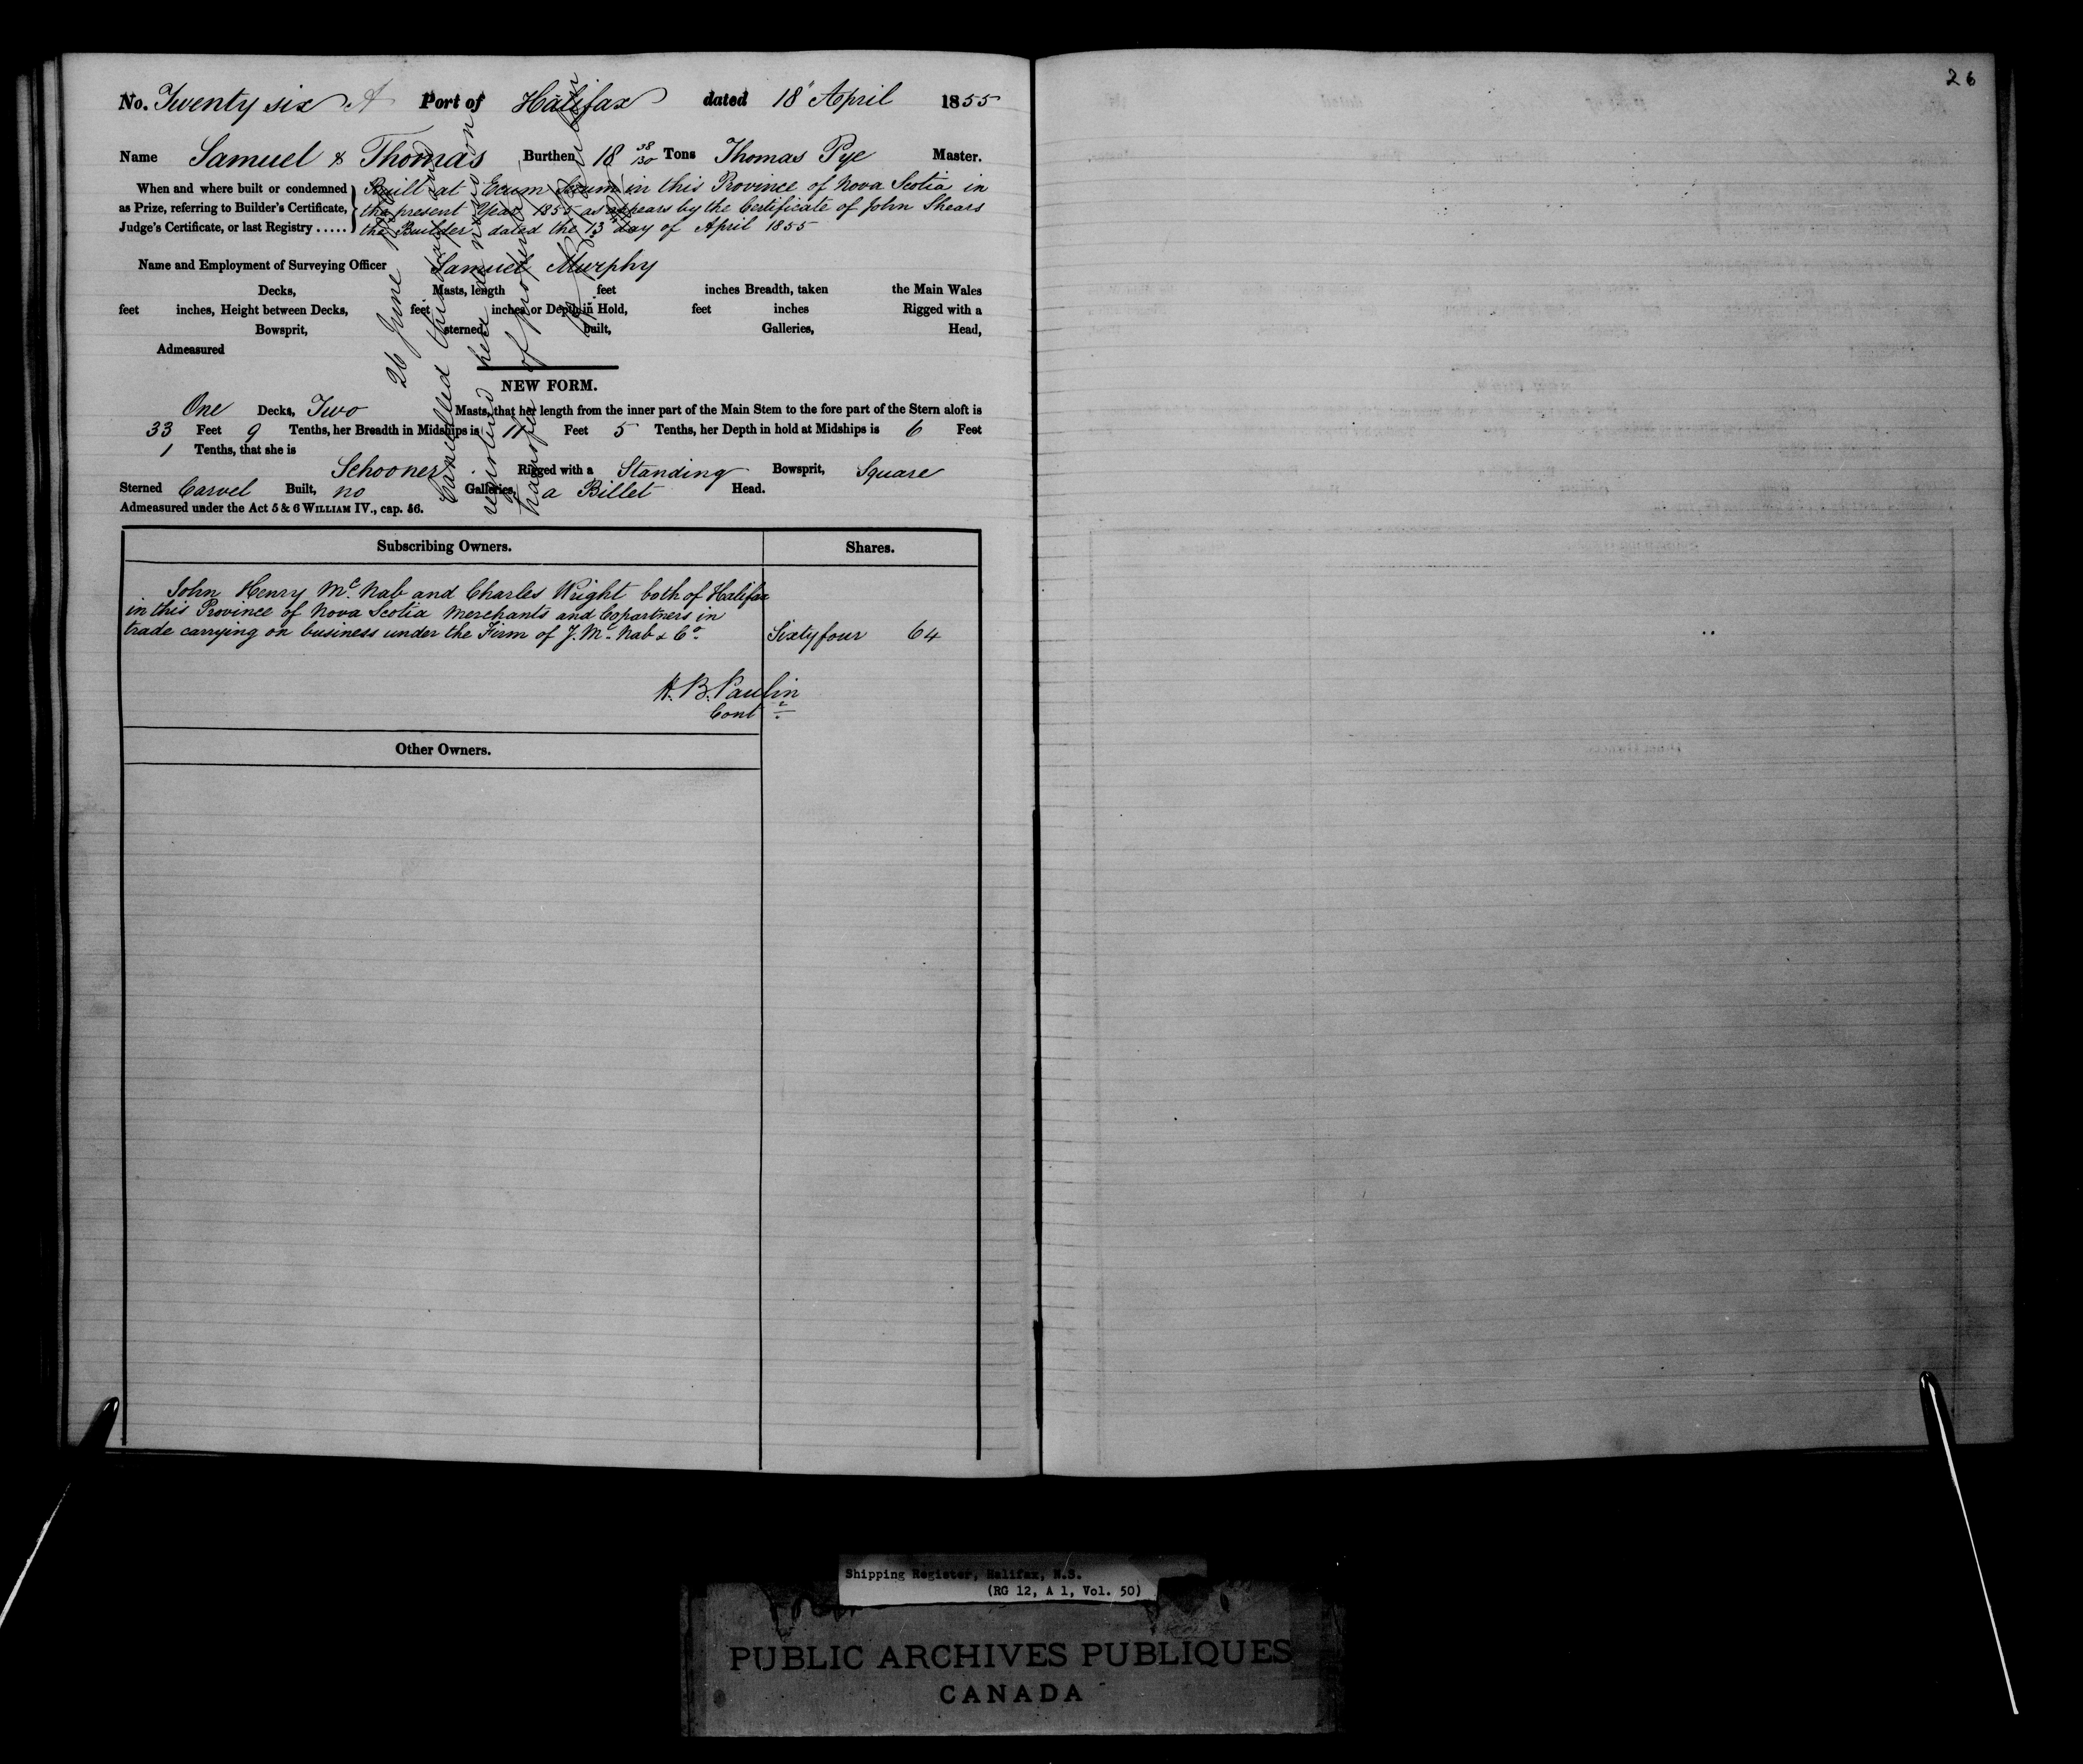 26
No. Twenty six A Port of Halifax dated 18 April 1855
Name Samuel & Thomas Burthen 18 38/130 Tons Thomas Pye Master.
When and where built or condemned as Prize, referring to Builder's Certificate, Judge's Certificate, or last Registry .....
Built at Ecum Secum in this Province of Nova Scotia in
the present Year 1855 as appears by the Certificate of John Shears
the Builder dated the 13 day of April 1855
Name and Employment of Surveying Officer Samuel Murphy
Decks, Masts, length feet inches Breadth, taken the Main Wales
feet inches, Height between Decks, feet inches or Depth in Hold, feet inches Rigged with a
Bowsprit, sterned built, Galleries, Head,
Admeasured
NEW FORM.
One Decks, Two Masts, that her length from the inner part of the Main Stem to the fore part of the Stern aloft is
33 Feet 9 Tenths, her Breadth in Midships is 11 Feet 5 Tenths, her Depth in hold at Midships is 6 Feet
1 Tenths, that she is
Schooner Rigged with a Standing Bowsprit, Square
Sterned Carvel Built, no Galleries, a Billet Head.
Admeasured under the Act 5 & 6 WILLIAM IV., cap. 56.
26 June
Cancelled this day and
registered here de novo on
transfer of property
Subscribing Owners. Shares.
John Henry McNab and Charles Wright both of Halifax
in this Province of Nova Scotia Merchants and Copartners in
trade carrying on business under the Firm of J. McNab & Co. Sixty four 64
H. B. Paulin
Contr
Other Owners.
Shipping Register, Halifax, N.S.
(RG 12, A 1, Vol. 50)
PUBLIC ARCHIVES PUBLIQUES
CANADA